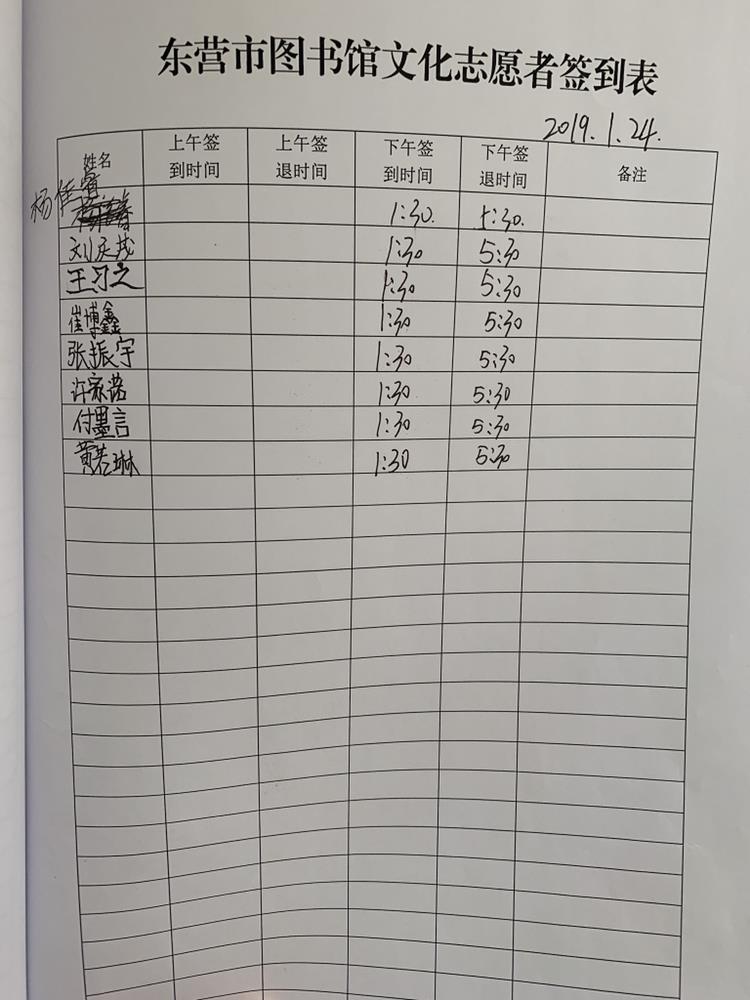 东营市图书馆文化志愿者签到表
2019.1.24.
姓名 上午签到时间 上午签退时间 下午签到时间 下午签退时间 备注
杨佳睿 1:30. 5:30.
刘庆茂 1:30 5:30
王习之 1:30 5:30
崔博鑫 1:30 5:30
张振宇 1:30 5:30
许家诺 1:30 5:30
付墨言 1:30 5:30
黄若琳 1:30 5:30